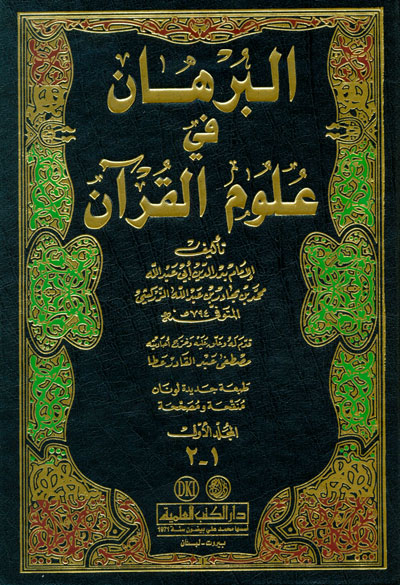 البُرهَان
في
عُلُومِ القُرآن
تأليف
الإمَام بَدر الدّين أبي عَبد الله
محمّد بن بهَادر بن عَبد الله الزركشي
المتوفى سنة ٧٩٤ هـ
قدّم له وعلّق عليه وخرّج أحاديثه
مصطفى عَبد القَادر عطا
طبعة جديدة لونان
منقحة ومصححة
المجلّد الأوّل
١-٢
DKI
دار الكتب العلمية
أسسها محمد علي بيضون سنة 1971
بيروت - لبنان